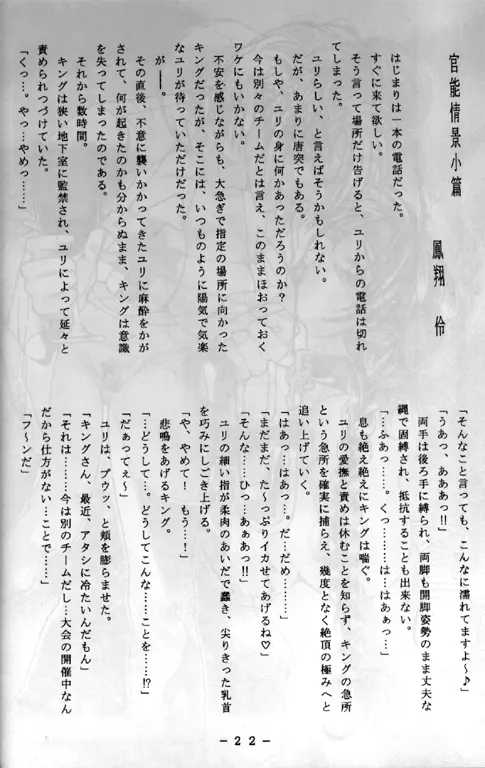 官能情景小篇
鳳翔 伶
はじまりは一本の電話だった。
すぐに来て欲しい。
そう言って場所だけ告げると、ユリからの電話は切れ
てしまった。
ユリらしい、と言えばそうかもしれない。
だが、あまりに唐突でもある。
もしや、ユリの身に何かあっただろうのか?
今は別々のチームだとは言え、このままほおっておく
ワケにもいかない。
不安を感じながらも、大急ぎで指定の場所に向かった
キングだったが、そこには、いつものように陽気で気楽
なユリが待っていただけだった。
が――。
その直後、不意に襲いかかってきたユリに麻酔をかが
されて、何が起きたのかも分からぬまま、キングは意識
を失ってしまったのである。
それから数時間。
キングは狭い地下室に監禁され、ユリによって延々と
責められつづけていた。
「くっ…。やっ…やめっ……」
「そんなこと言っても、こんなに濡れてますよ〜♪」
「うあっ、あああっ!!」
両手は後ろ手に縛られ、両脚も開脚姿勢のまま丈夫な
縄で固縛され、抵抗することも出来ない。
「…ふあっ…。くっ………は…はあぁっ…」
息も絶え絶えにキングは喘ぐ。
ユリの愛撫と責めは休むことを知らず、キングの急所
という急所を確実に捕らえ、幾度となく絶頂の極みへと
追い上げていく。
「はあっ…はあっ…。だ…だめ………」
「まだまだ、た〜っぷりイカせてあげるね♡」
「そんな……ひっ…あぁあっ!!」
ユリの細い指が柔肉のあいだで蠢き、尖りきった乳首
を巧みにしごき上げる。
「や、やめて! もう…!」
悲鳴をあげるキング。
「…どうして…。どうしてこんな……ことを……!?
「だぁってぇ〜」
ユリは、プウッ、と頬を膨らませた。
「キングさん、最近、アタシに冷たいんだもん」
「それは………今は別のチームだし…大会の開催中なん
だから仕方がない…ことで……」
「フ〜ンだ」
-22-